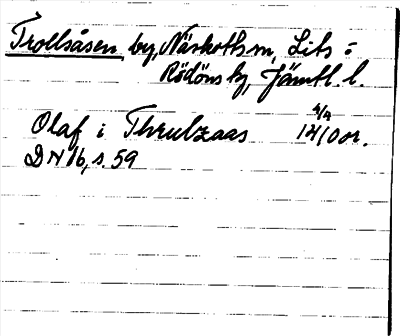 Trollsåsen, by, Näskotts sn, Lits o
Rödöns tg, Jämtl. l.
Olaf i Thrulzaas 4/4 1410 or.
DN 16, s. 59